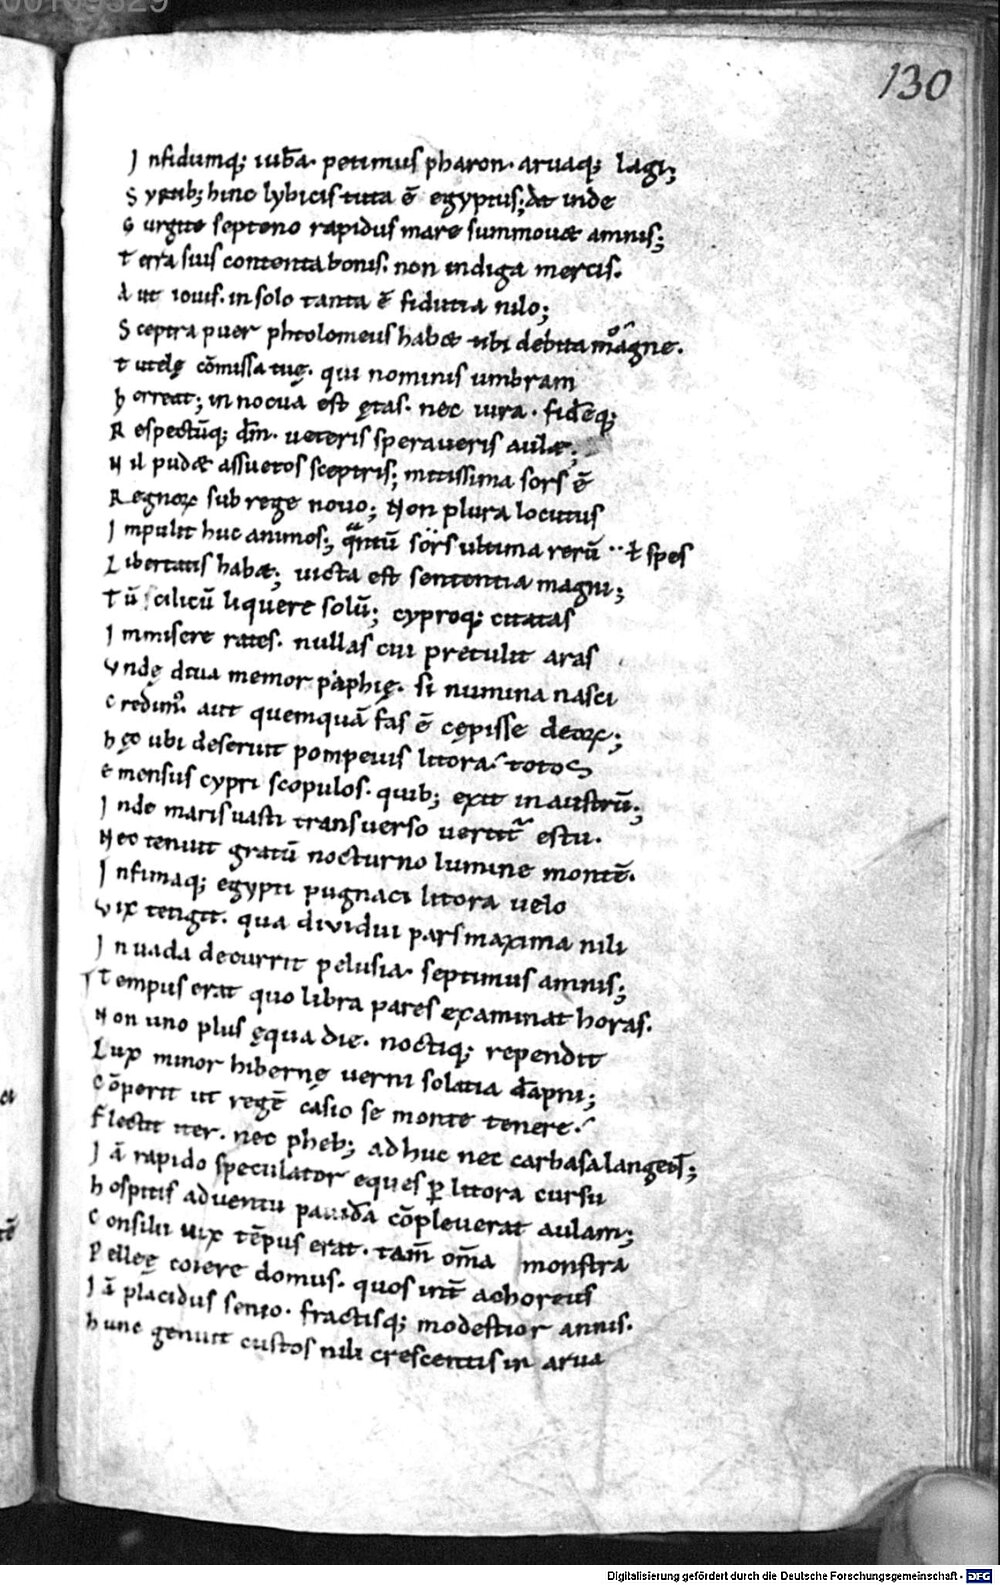 130
I nfidumq; iub̄a. petimus pharon. aruaq; lagi;
S yrtib; hinc lybicis tuta ē egyptus; at inde
G urgite septeno rapidus mare summouet amnis;
T erra suis contenta bonis. non indiga mercis.
A ut iouis. in solo tanta ē fidutia nilo;
S ceptra puer phtolomeus habet tibi debita magne.
T utelę cōmissa tuę. qui nominis umbram
h orreat; in nocua est ętas. nec iura. fidēq;
R espectūq; dm̄. ueteris speraueris aulae;
N il pudet assuetos sceptris; mitissima sors ē
R egnoꝝ sub rege nouo; Non plura locutus
I mpulit huc animos; qntū sors ultima rerū ·· ł spes
L ibertatis habet; uicta est sententia magni;
T ū cilicū liquere solū; cyproq; citatas
I mmisere rates. nullas cui pretulit aras
V ndę diua memor paphię. si numina nasci
C redim᷒. aut quemquā fas ē cępisse deoꝝ;
h ęc ubi deseruit pompeius litora. totos
E mensus cypri scopulos. quib; exit in austrū;
I nde maris uasti transuerso uertit᷑ estu.
N ec tenuit gratū nocturno lumine montē.
I nfimaq; egypti pugnaci litora uelo
V ix tetigit. qua dividui pars maxima nili
I n uada decurrit pelusia. septimus amnis;
T empus erat quo libra pares examinat horas.
N on uno plus ęqua die. noctiq; rependit
L ux minor hibernę uerni solatia dāpni;
C ōperit ut regē casio se monte tenere.
F lectit iter. nec pheb; adhuc nec carbasa langent;
I ā rapido speculator eques ꝑ litora cursu
h ospitis aduentu pauidā cōpleuerat aulam;
C onsilii uix tēpus erat. tam̄ om̄a monstra
P ellęę coiere domus. quos int̄ achoreus
I ā placidus senio. fractisq; modestior annis.
h unc genuit custos nili crescentis in arua
Digitalisierung gefördert durch die Deutsche Forschungsgemeinschaft - DFG